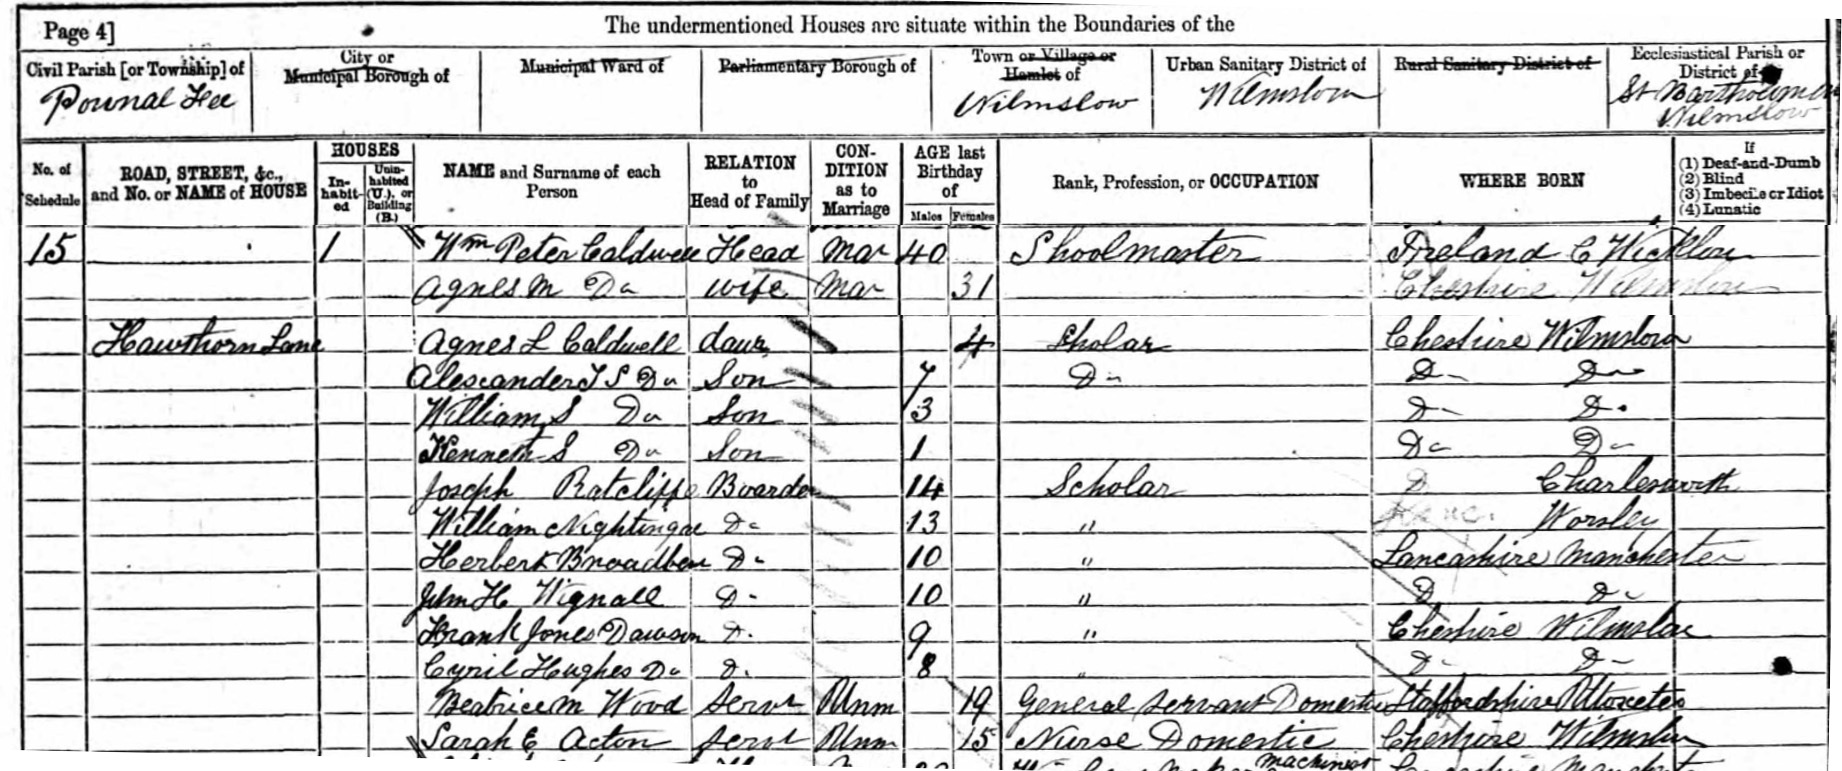 Page 4]
The undermentioned Houses are situate within the Boundaries of the
Civil Parish [or Township] of
Pownal Fee
City or Municipal Borough of
Municipal Ward of
Parliamentary Borough of
Town or Village or Hamlet of
Wilmslow
Urban Sanitary District of
Wilmslow
Rural Sanitary District of
Ecclesiastical Parish or District of
St Bartholomew Wilmslow
No. of Schedule
ROAD, STREET, &c., and No. or NAME of HOUSE
HOUSES
In-habit-ed
Unin-habited (U.), or Building (B.)
NAME and Surname of each Person
RELATION to Head of Family
CON-DITION as to Marriage
AGE last Birthday of
Males Females
Rank, Profession, or OCCUPATION
WHERE BORN
If
(1) Deaf-and-Dumb
(2) Blind
(3) Imbecile or Idiot
(4) Lunatic
15 1 Wm Peter Caldwell Head Mar 40 Shoolmaster Ireland C Wicklow
Agnes M Do wife Mar 31 Cheshire Wilmslow
Hawthorn Lane Agnes L Caldwell daur 4 Scholar Cheshire Wilmslow
Alexander J S Do Son 7 Do Do Do
William S Do Son 3 Do Do
Kenneth S Do Son 1 Do Do
Joseph Ratcliffe Boarder 14 Scholar D Charlesworth
William Nightingale Do 13 " Worsley
Herbert Broadben Do 10 " Lancashire Manchester
John H Wignall Do 10 " D Do
Frank Jones Dawson D. 9 " Cheshire Wilmslow
Cyril Hughes Do D. 8 " Do Do
Beatrice M Wood Servt Unm 19 General Servant Domestic Staffordshire Uttoxeter
Sarah E Acton Servt Unm 15 Nurse Domestic Cheshire Wilmslow
machinest